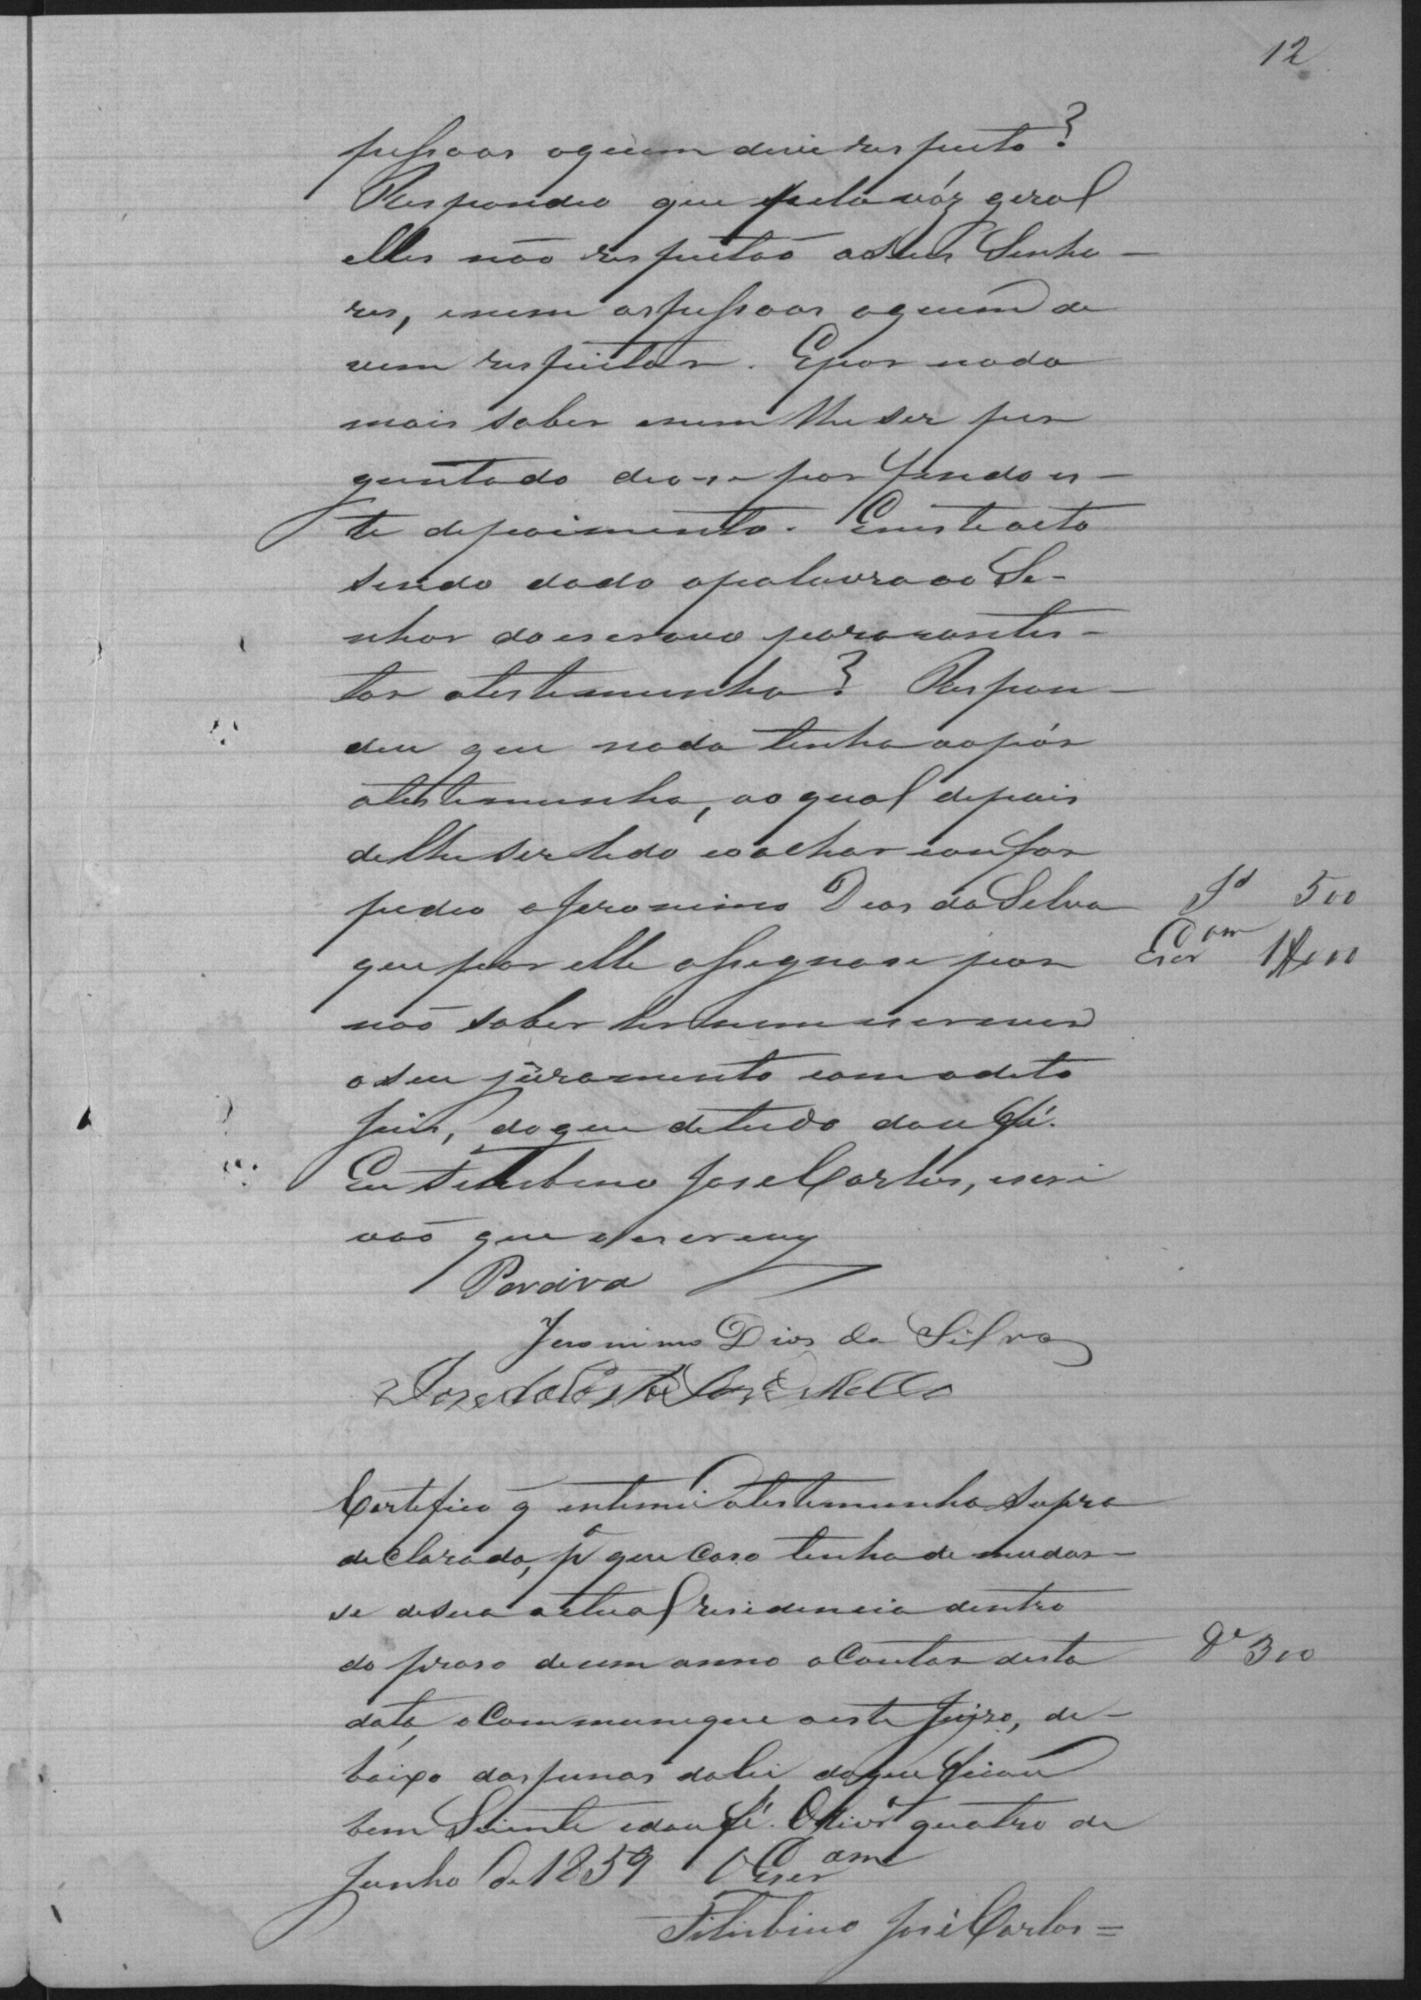 12
pessoas aquem deve respeito?
Respondeo que pela vóz geral
elles não respeitão aSeus Senho-
res, enem aspessoas aquem de
vem respeitar. Epor nada
mais saber enem lhe ser per
guntado deo-se por findo es-
te depoimento. Eneste acto
sendo dada apalavra ao Se-
nhor do escravo para contes-
tar atestemunha? Respon-
deu que nada tenha aopôr
atestemunha, ao qual depois
delhe ser lido eoachar confor
pedeo a Jeronimo Dias da Silva Jd 500
que por elle assignase por Escram 1$000
não saber ler nem escrever
o seu juramento com o dito
Juis, do que de tudo dou fé.
Eu Felisbino José Carlos, escri
vão que o escrevy
Jeronimo Dias da Silva
José da Costa Mello
Certifico q intimei atestemunha supra
declarada, pa que caso tenha de mudar-
se de sua actual residencia dentro
do praso de um anno aContar desta De 300
data, oCommunique a este Juizo, de-
baixo das penas da lei, do que ficou
bem Sciente edou fé. quatro de
Junho de 1859 O Escram
Felisbino José Carlos =